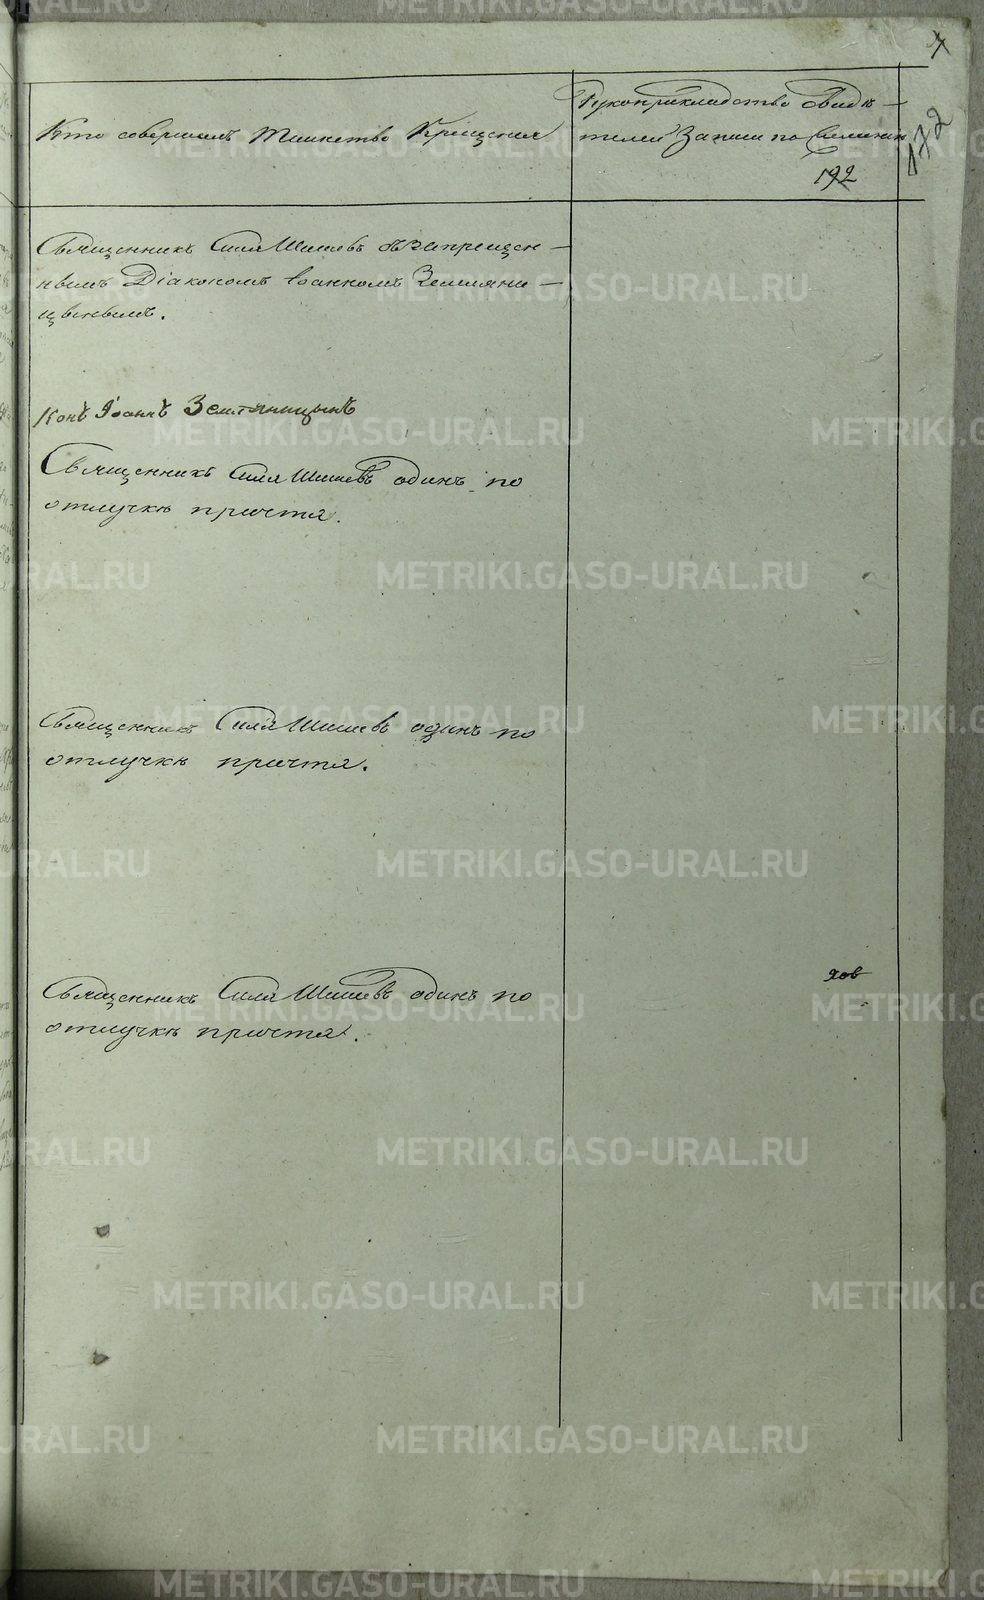 Кто совершалъ Таинство Крещенія
Рукоприкладство свидѣ-
телей Записи по желанію
172
192
Священникъ Сила Шишевъ съ запрещен-
нымъ Діакономъ Іоанномъ Земляни-
цынымъ.
Іоаннъ Земляницынъ
Священникъ Сила Шишевъ одинъ по
отлучкѣ причта.
Священникъ Сила Шишевъ одинъ по
отлучкѣ причта.
Священникъ Сила Шишевъ одинъ по
отлучкѣ причта.
METRIKI.GASO-URAL.RU